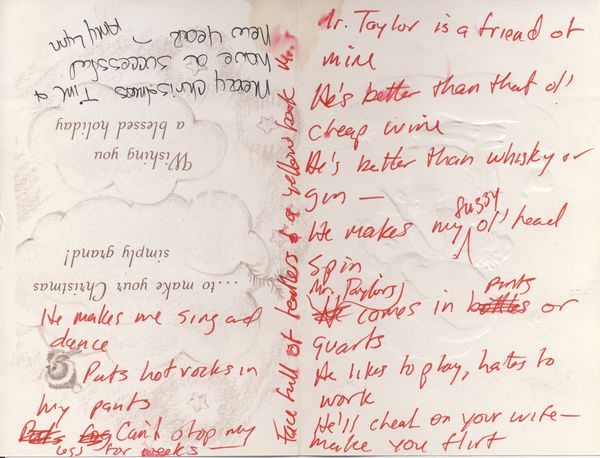 Mr. Taylor is a friend of
mine
He's better than that ol'
cheap wine
He's better than whisky or
gin —
He makes my fuzzy ol' head
spin
Mr. Taylor comes in pints or
quarts
He likes to play, hates to
work
He'll cheat on your wife —
make you flirt
Face full of feathers & a yellow
He makes me sing and
dance
Puts hot rocks in
my pants
Can't stop my
legs for weeks —
Merry Christmas Time &
have a successful
new year ~ Amy Lynn
Wishing you
a blessed holiday
...to make your Christmas
simply grand!